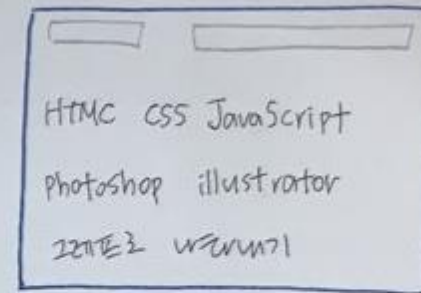 HTMC CSS JavaScript
photoshop illustrator
그래프로 나타내기